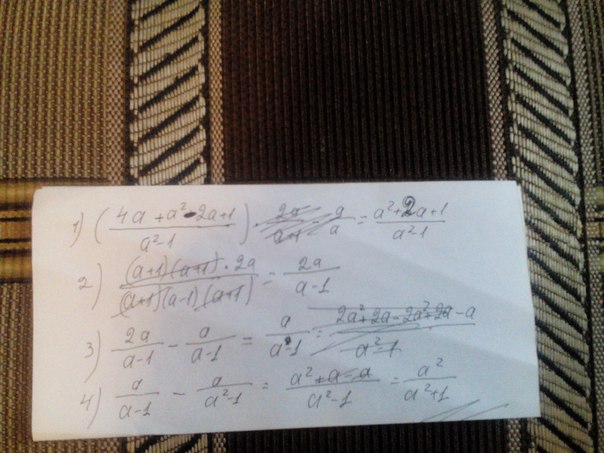 1) ( (4a + a² - 2a + 1) / (a² - 1) ) · 2a/(a+1) - a/a = (a² + 2a + 1) / (a² - 1)
2) ((a+1)(a+1) · 2a) / ((a+1)(a-1)(a+1)) = 2a / (a-1)
3) 2a/(a-1) - a/(a-1) = a/(a-1) = (2a² + 2a - 2a² + 2a - a) / (a² - 1)
4) a/(a-1) - a/(a²-1) = (a² + a - a) / (a² - 1) = a² / (a² + 1)